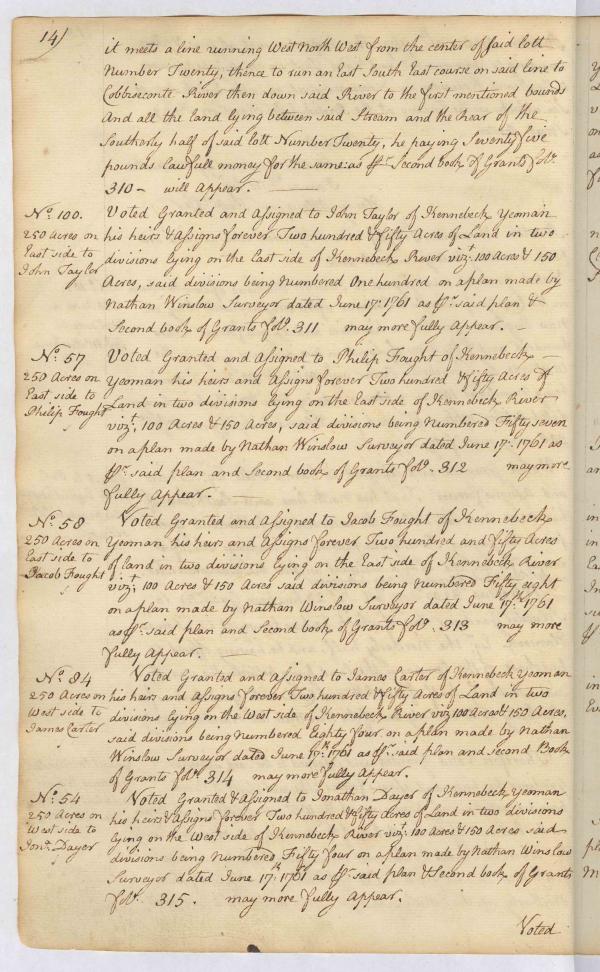 14/
it meets a line running West North West from the center of said lott
Number Twenty, thence to run an East South East course on said line to
Cobbiseconte River then down said River to the first mentioned bounds
And all the land lying between said Stream and the Rear of the
Southerly half of said lott Number Twenty, he paying Seventy five
pounds lawfull money for the same: as pr. Second book of Grants folo.
310 - will Appear.
No. 100.
250 Acres on
East side to
John Taylor
Voted Granted and Assigned to John Taylor of Kennebeck Yeoman
his heirs & Assigns forever Two hundred & fifty Acres of Land in two
divisions lying on the East side of Kennebeck River vizt. 100 Acres & 150
Acres, said divisions being Numbered One hundred on a plan made by
Nathan Winslow Surveyor dated June 17th. 1761 as pr. said plan &
Second book of Grants folo. 311 may more fully Appear.
No. 57
250 Acres on
East side to
Philip Fought
Voted Granted and Assigned to Philip Fought of Kennebeck
Yeoman his heirs and Assigns forever Two hundred & fifty Acres of
Land in two divisions lying on the East side of Kennebeck River
vizt. 100 Acres & 150 Acres, said divisions being Numbered Fifty seven
on a plan made by Nathan Winslow Surveyor dated June 17th. 1761 as
pr. said plan and Second book of Grants folo. 312 may more
fully Appear.
No. 58
250 Acres on
East side to
Jacob Fought
Voted Granted and Assigned to Jacob Fought of Kennebeck
Yeoman his heirs and Assigns forever Two hundred and fifty Acres
of land in two divisions lying on the East side of Kennebeck River
vizt. 100 Acres & 150 Acres said divisions being Numbered Fifty eight
on a plan made by Nathan Winslow Surveyor dated June 17th. 1761
as pr. said plan and Second book of Grants folo. 313 may more
fully Appear.
No. 84
250 Acres on
West side to
James Carter
Voted Granted and Assigned to James Carter of Kennebeck Yeoman
his heirs and Assigns forever Two hundred & fifty Acres of Land in two
divisions lying on the West side of Kennebeck River viz 100 Acres & 150 Acres,
said divisions being Numbered Eighty four on a plan made by Nathan
Winslow Surveyor dated June 17th. 1761 as pr. said plan and second Book
of Grants folo. 314 may more fully Appear.
No. 54
250 Acres on
West side to
Jona. Dayer
Voted Granted & Assigned to Jonathan Dayer of Kennebeck Yeoman
his heirs & Assigns forever Two hundred & fifty Acres of Land in two divisions
lying on the West side of Kennebeck River viz: 100 Acres & 150 Acres said
divisions being Numbered Fifty four on a plan made by Nathan Winslow
Surveyor dated June 17th. 1761 as pr. said plan & Second book of Grants
folo. 315. may more fully Appear.
Voted